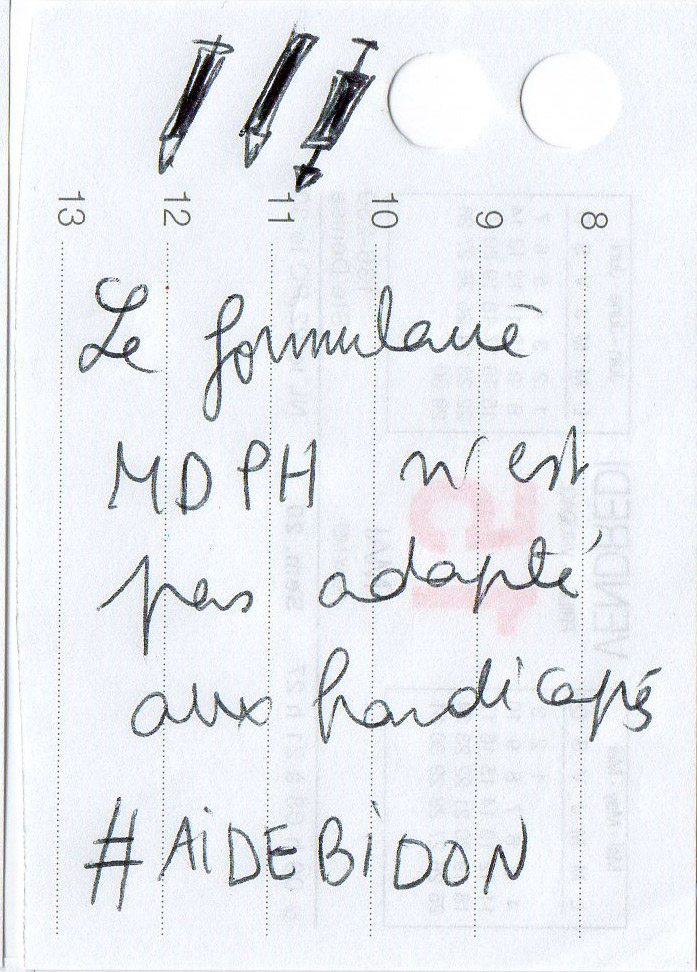 13 12 11 10 9 8
Le formulaire
MDPH n'est
pas adapté
aux handicapés
#AiDEBiDON
VENDREDI
15